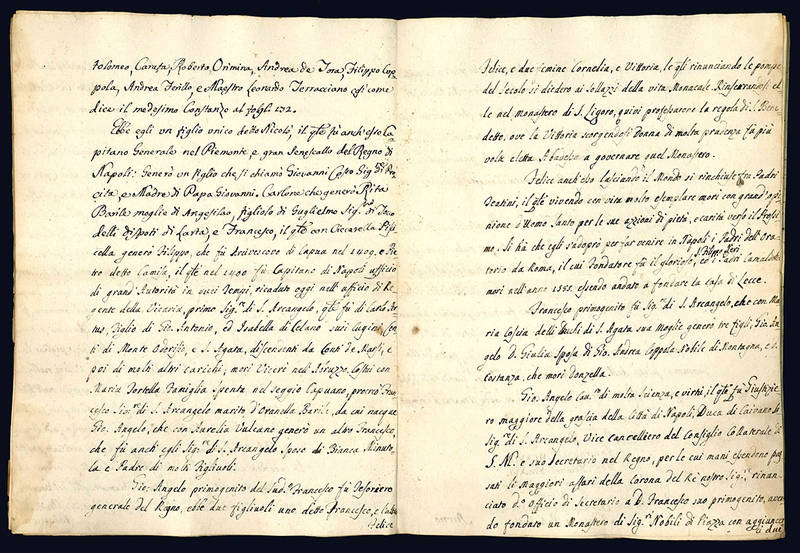 tolomeo, Carafa, Roberto Orimina, Andrea de Tora, Filippo Cop
pola, Andrea Ferillo, e Maestro Leonardo Terracciono così come
dice il medesimo Costanzo al fogli. 172.
Ebbe egli un figlio unico detto Nicolò, il qle fù anch'esso Ca
pitano Generale nel Piemonte, e gran Senescallo del Regno di
Napoli: Generò un figlio che si chiamò Giovanni
cita, e Madre di Papa Giovanni. Carlone che generò Rita
Barile moglie di Angefilao, figliolo di Guglielmo Sigre di
delli dispoti di Larta, e Francesco, il qle con Ciccarella
cella generò Filippo, che fù Arcivescovo di Capua nel 1409. e
tro detto Camisa, il qle nel 1400 fù Capitano di Napoli ufficio
di grand'Autorità in quei Tempi, ricaduto oggi nell'ufficio di Re
gente della Vicaria, primo Sigre di S. Arcangelo, qle fù di Carlo
Figlio di Gio: Antonio, ed Isabella di Celano suoi Cugini, Con
ti di Monte Odorisio, e S. Agata, discendenti da Conti de Marsi, e
poi di molti altri carichi, morì Vicerè nell'Abruzzo. Costui con
Maria Tortella Famiglia spenta nel seggio Capuano, procreò Fran
cesco Sigre di S. Arcangelo marito d'Oronella Barile, da cui nacque
Gio: Angelo, che con Aurelia Vulcano generò un altro Francesco,
che fù anch'egli Sigre di S. Arcangelo Sposo di Bianca Minuto
la e Padre di molti figliuoli.
Gio: Angelo primogenito del Sudo Francesco fù Tesoriero
generale del Regno, ebbe due figliuoli uno detto Francesco, e l'altro
Felice
Felice, e due femine Cornelia, e Vittoria, le qli rinunciando le pompe
del Secolo si diedero ai Sollazzi della vita Monacale Rinserrandosi el
le nel monastero di S. Ligoro, quivi professarono la regola di S. Bene
detto, ove la Vittoria scorgendosi Donna di molta prudenza fù più
volte eletta Abadessa a governare quel Monastero.
Felice anch'esso lasciando il Mondo si rinchiuse frà Padri
Teatini, il qle vivendo con vita molto esemplare morì con grand'opi
nione d'Uomo Santo per le sue azioni di pietà, e carità verso il Prossi
mo. Si hà che egli s'adoprò per far venire in Napoli i Padri dell'Ora
torio da Roma, il cui Fondatore fù il glorioso S. Filippo Neri, ed i Padri Camaldoli
morì nell'anno 1585. essendo andato a fondare la Casa di Lecce.
Francesco primogenito fù Sigre di S. Arcangelo, che con Ma
ria Coscia delli Duchi di S. Agata sua Moglie generò tre figli, Gio: An
gelo D. Giulia Sposa di Gio: Andrea Coppola Nobile di Montagna, e D.
Costanza, che morì donzella.
Gio: Angelo Cav.re di molta Scienza, e virtù, il qle fù Giustizie
ro maggiore della grascia della Città di Napoli, Duca di Caivano
Sigre di S. Arcangelo, Vice Cancelliero del Consiglio Collaterale di
S. M. e suo Secretario nel Regno, per le cui mani essendono pas
sati li maggiori affari della Corona del Rè nostro Sigre, rinun
ciato do Officio di Secretario a D. Francesco suo primogenito, aven
do fondato un Monastero di Sigre Nobili di Piazza con aggiuncerci
due